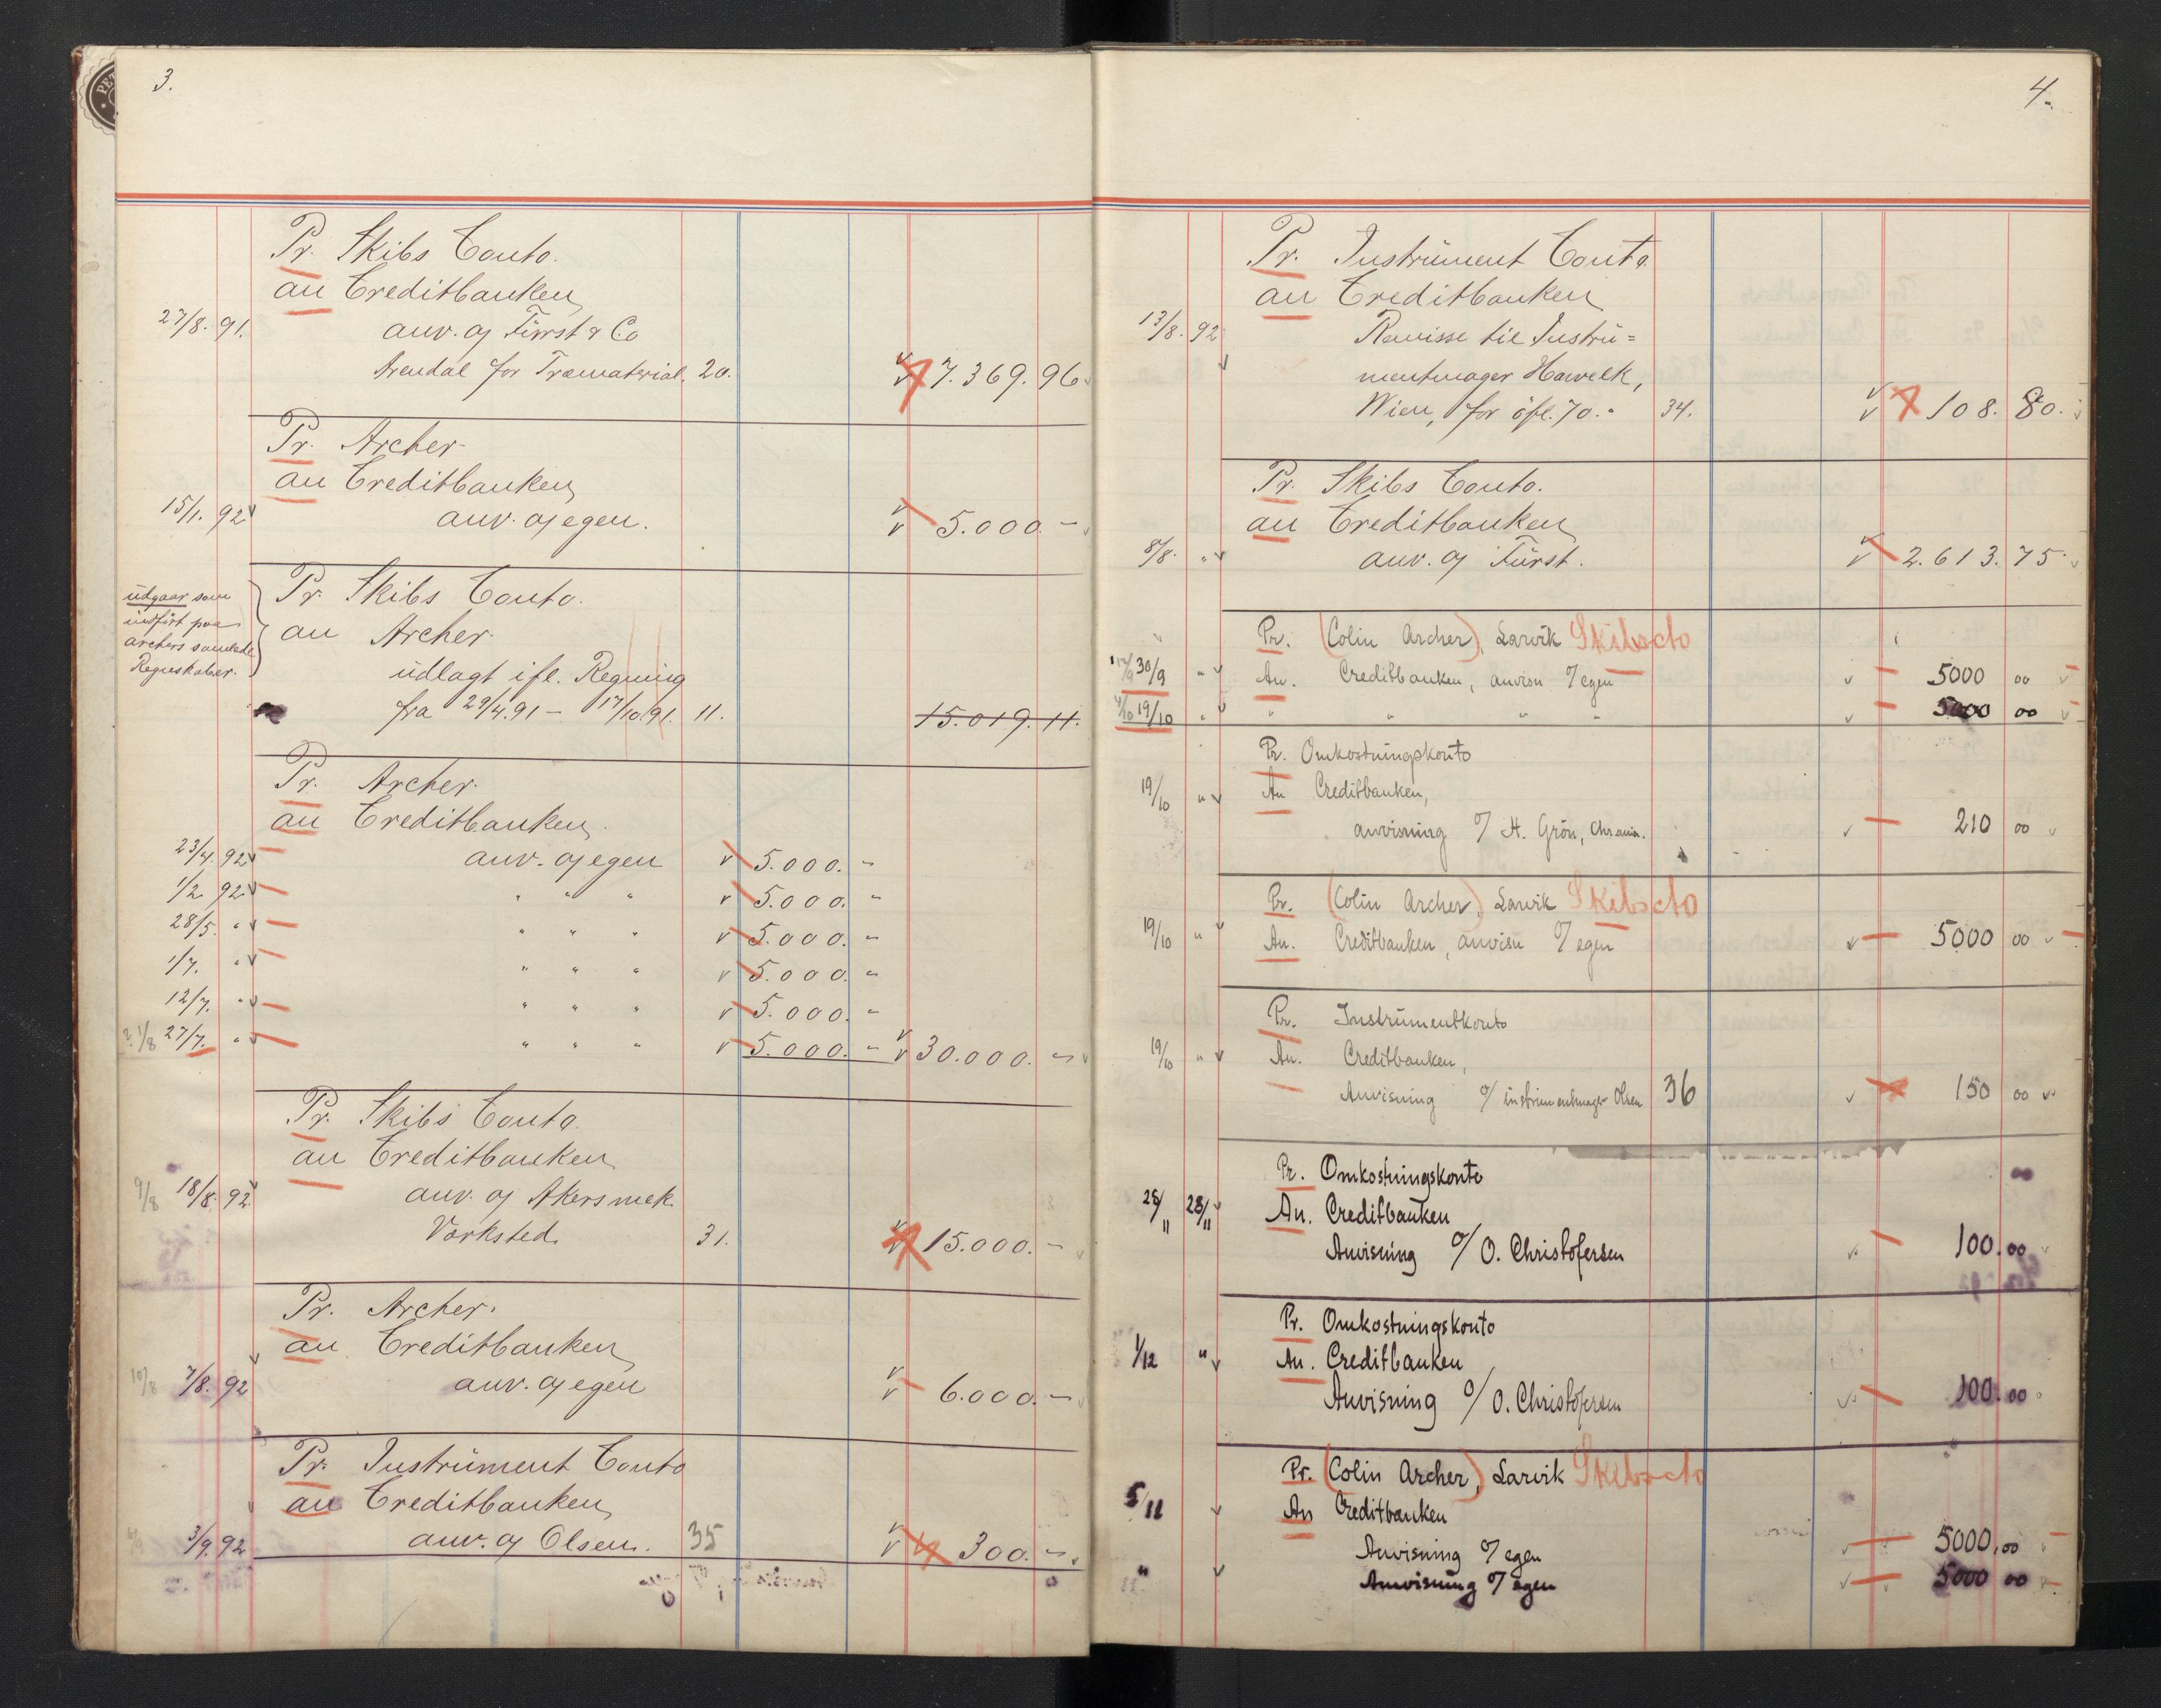 3.
Pr. Skibs Conto.
an Creditbanken
27/8. 91. anv. af Fürst & Co
Arendal for Træmaterial. 20. 7.369.96
Pr. Archer.
an Creditbanken
15/1. 92 anv. af egen. 5.000.-
udgaar som
indført paa
archers samlede
Regnskaber.
Pr. Skibs Conto.
an Archer.
udlagt ifl. Regning
fra 29/4.91 - 17/10.91. 11. 15.019.11.
Pr. Archer.
an Creditbanken.
23/4. 92 anv. af egen 5.000. -
1/2 92 " " " 5.000. -
28/5. " " " " 5.000. -
1/7. " " " " 5.000. -
12/7. " " " " 5.000. -
1/8 27/7. " " " " 5.000. - 30.000. -
Pr. Skibs Conto.
an Creditbanken
9/8 18/8. 92 anv. af Akers mek.
Værksted. 31. 15.000. -
Pr. Archer.
an Creditbanken
10/8 7/8. 92 anv. af egen 6.000. -
Pr. Instrument Conto
an Creditbanken
3/9. 92 anv. af Olsen. 35 300. -
4.
Pr. Instrument Conto.
an Creditbanken
13/8. 92 Remisse til Instru=
mentmager Hawelk,
Wien, for öfl. 70.- 34. 108. 80.
Pr. Skibs Conto.
an Creditbanken
8/8. " anv. af Fürst. 2.613.75
Pr. (Colin Archer), Larvik Skibscto
30/9 " An. Creditbanken, anvisn º/ egen 5000 00
19/10 " " " " " 5000 00
Pr. Omkostningskonto
19/10 " An Creditbanken,
anvisning º/ H. Grön, Chrania. 210 00
Pr. (Colin Archer), Larvik Skibscto
19/10 " An. Creditbanken, anvisn º/ egen 5000 00
Pr. Instrumentkonto
19/10 " An. Creditbanken,
Anvisning º/ instrumentmager Olsen 36 150 00
Pr. Omkostningskonto
28/11 28/11 An. Creditbanken
Anvisning º/ O. Christofersen 100.00
Pr. Omkostningskonto
1/12 " An. Creditbanken
Anvisning º/ O. Christofersen 100.00
Pr. (Colin Archer), Larvik Skibscto
5/11 An Creditbanken
Anvisning º/ egen 5000,00
" Anvisning º/ egen 5000 00